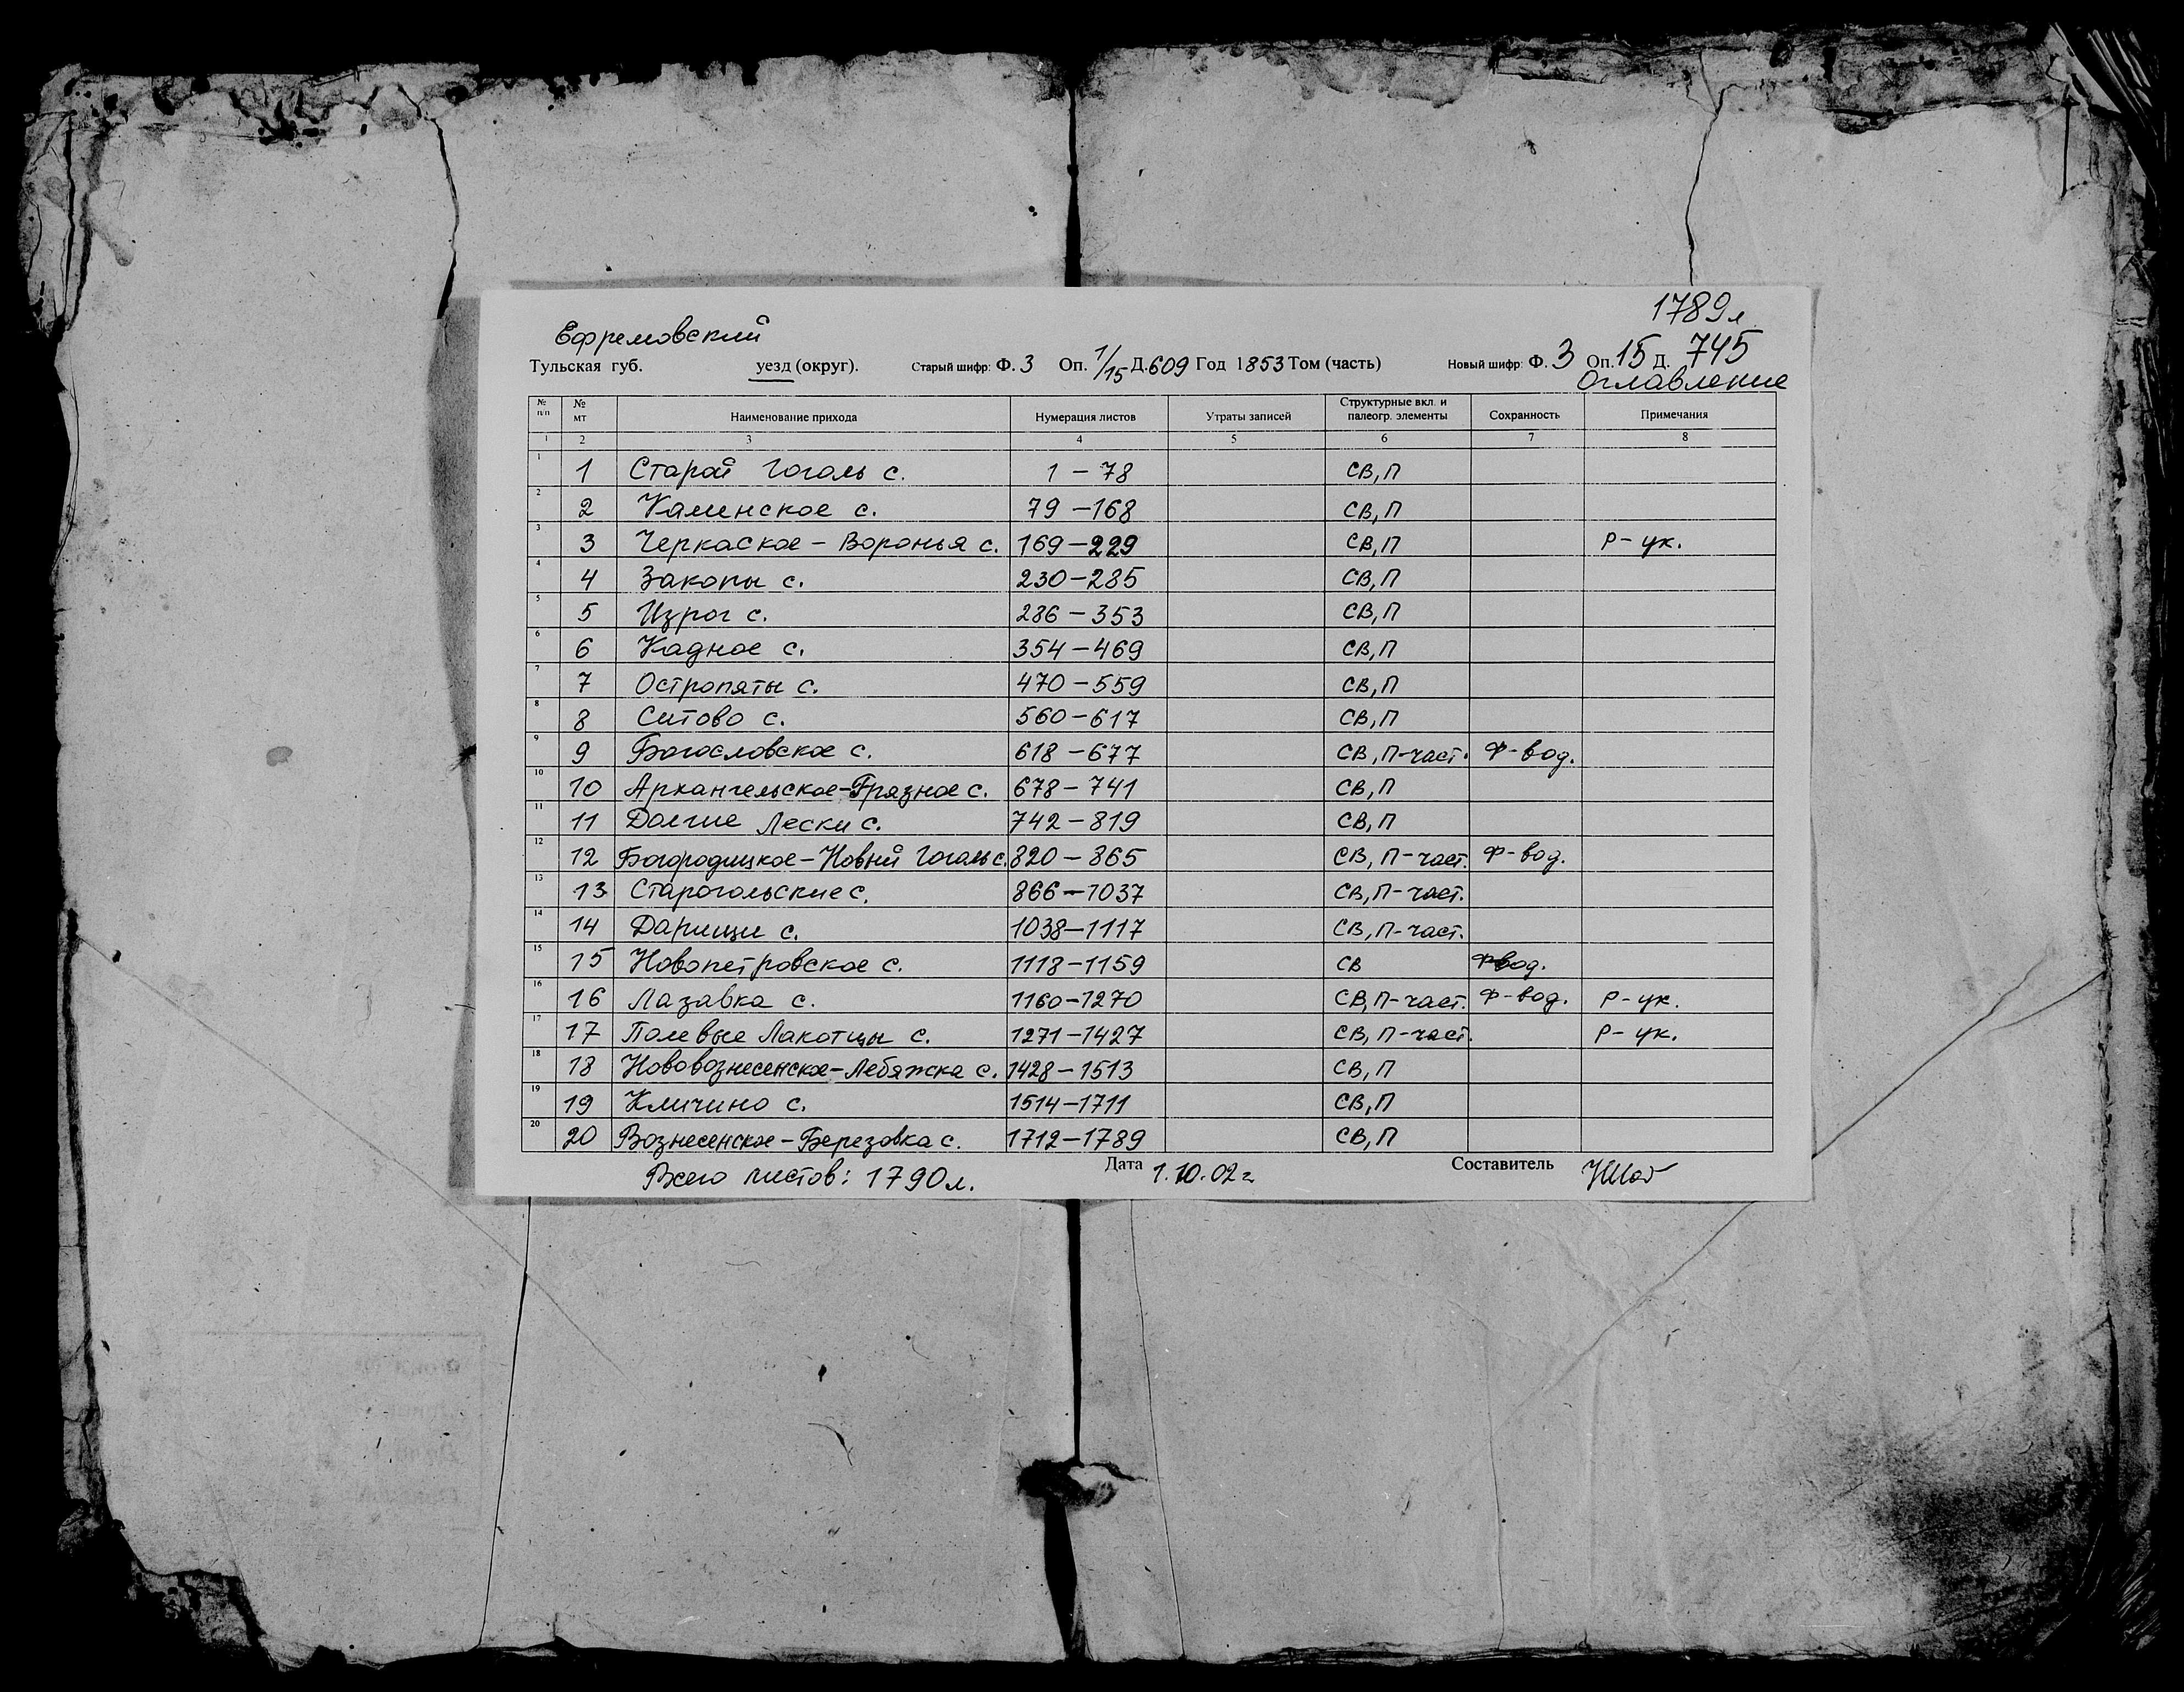 1789 л.
Ефремовский
Тульская губ. уезд (округ). Старый шифр: Ф. 3 Оп. 1/15 Д. 609 Год 1853 Том (часть) Новый шифр: Ф. 3 Оп. 15 Д. 745
Оглавление
№ п/п № мт Наименование прихода Нумерация листов Утраты записей Структурные вкл. и палеогр. элементы Сохранность Примечания
1 2 3 4 5 6 7 8
1 1 Старой Гоголь с. 1 – 78 СВ, П
2 2 Каменское с. 79 – 168 СВ, П
3 3 Черкаское – Воронья с. 169 – 229 СВ, П Р – ук.
4 4 Закопы с. 230 – 285 СВ, П
5 5 Изрог с. 286 – 353 СВ, П
6 6 Кадное с. 354 – 469 СВ, П
7 7 Остропяты с. 470 – 559 СВ, П
8 8 Ситово с. 560 – 617 СВ, П
9 9 Богословское с. 618 – 677 СВ, П-част. Ф-вод.
10 10 Архангельское-Грязное с. 678 – 741 СВ, П
11 11 Долгие Лески с. 742 – 819 СВ, П
12 12 Богородицкое – Новый Гоголь с. 820 – 865 СВ, П-част. Ф-вод.
13 13 Старогольские с. 866 – 1037 СВ, П-част.
14 14 Дарищи с. 1038 – 1117 СВ, П-част.
15 15 Новопетровское с. 1118 – 1159 СВ Ф-вод.
16 16 Лазавка с. 1160 – 1270 СВ, П-част. Ф-вод. Р – ук.
17 17 Полевые Лакотцы с. 1271 – 1427 СВ, П-част. Р – ук.
18 18 Нововознесенское – Лебяжска с. 1428 – 1513 СВ, П
19 19 Кличино с. 1514 – 1711 СВ, П
20 20 Вознесенское – Березовка с. 1712 – 1789 СВ, П
Всего листов: 1790 л. Дата 1.10.02 г. Составитель